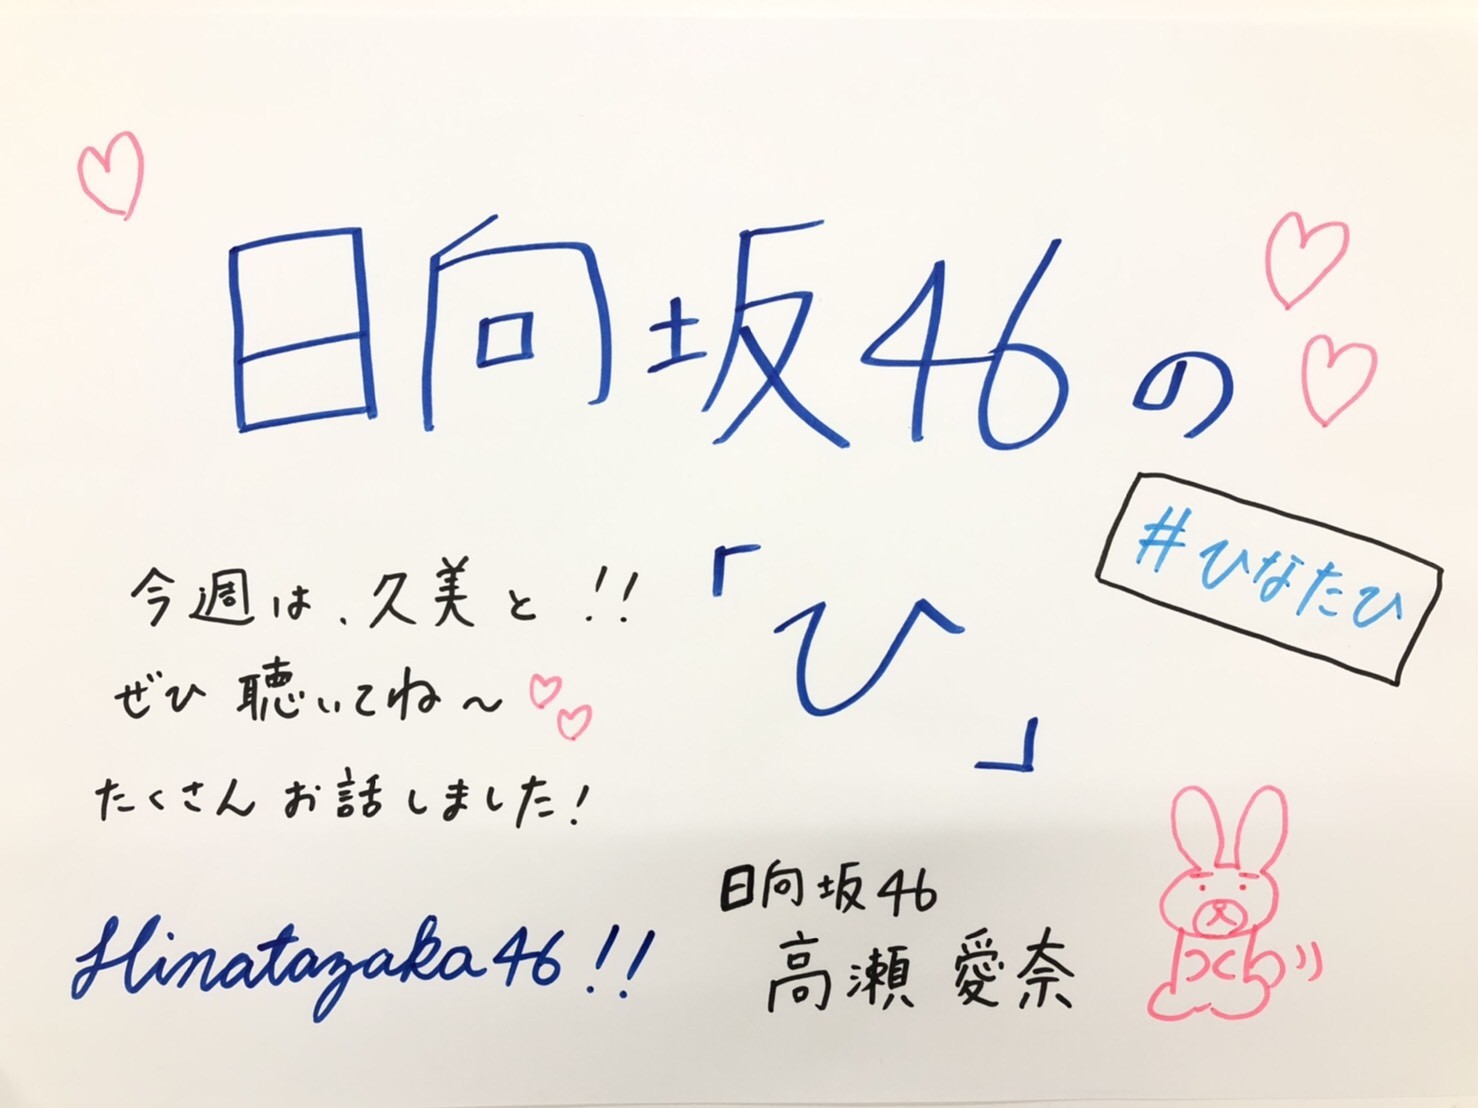 日向坂46の
「ひ」
#ひなたひ
今週は、久美と!!
ぜひ聴いてね～
たくさんお話しました!
Hinatazaka46!!
日向坂46
高瀬 愛奈